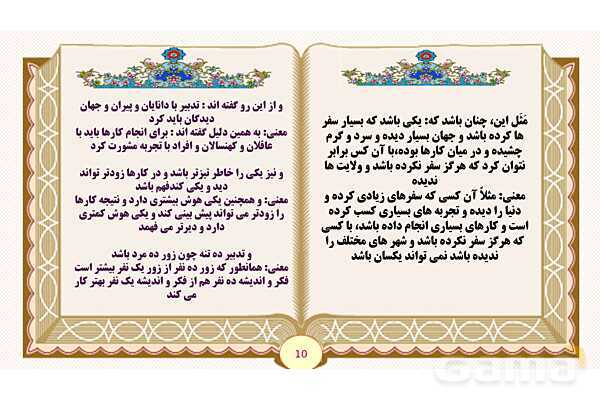 مَثَل این، چنان باشد که: یکی باشد که بسیار سفر
ها کرده باشد و جهان بسیار دیده و سرد و گرم
چشیده و در میان کارها بوده،با آن کس برابر
نتوان کرد که هرگز سفر نکرده باشد و ولایت ها
ندیده
معنی: مثلاً آن کسی که سفرهای زیادی کرده و
دنیا را دیده و تجربه های بسیاری کسب کرده
است و کارهای بسیاری انجام داده باشد، با کسی
که هرگز سفر نکرده باشد و شهر های مختلف را
ندیده باشد نمی تواند یکسان باشد
و از این رو گفته اند : تدبیر با دانایان و پیران و جهان
دیدگان باید کرد
معنی: به همین دلیل گفته اند : برای انجام کارها باید با
عاقلان و کهنسالان و افراد با تجربه مشورت کرد
و نیز یکی را خاطر تیزتر باشد و در کارها زودتر تواند
دید و یکی کندفهم باشد
معنی: و همچنین یکی هوش بیشتری دارد و نتیجه کارها
را زودتر می تواند پیش بینی کند و یکی هوش کمتری
دارد و دیرتر می فهمد
و تدبیر ده تنه چون زور ده مرد باشد
معنی: همانطور که زور ده نفر از زور یک نفر بیشتر است
فکر و اندیشه ده نفر هم از فکر و اندیشه یک نفر بهتر کار
می کند
10
Gama